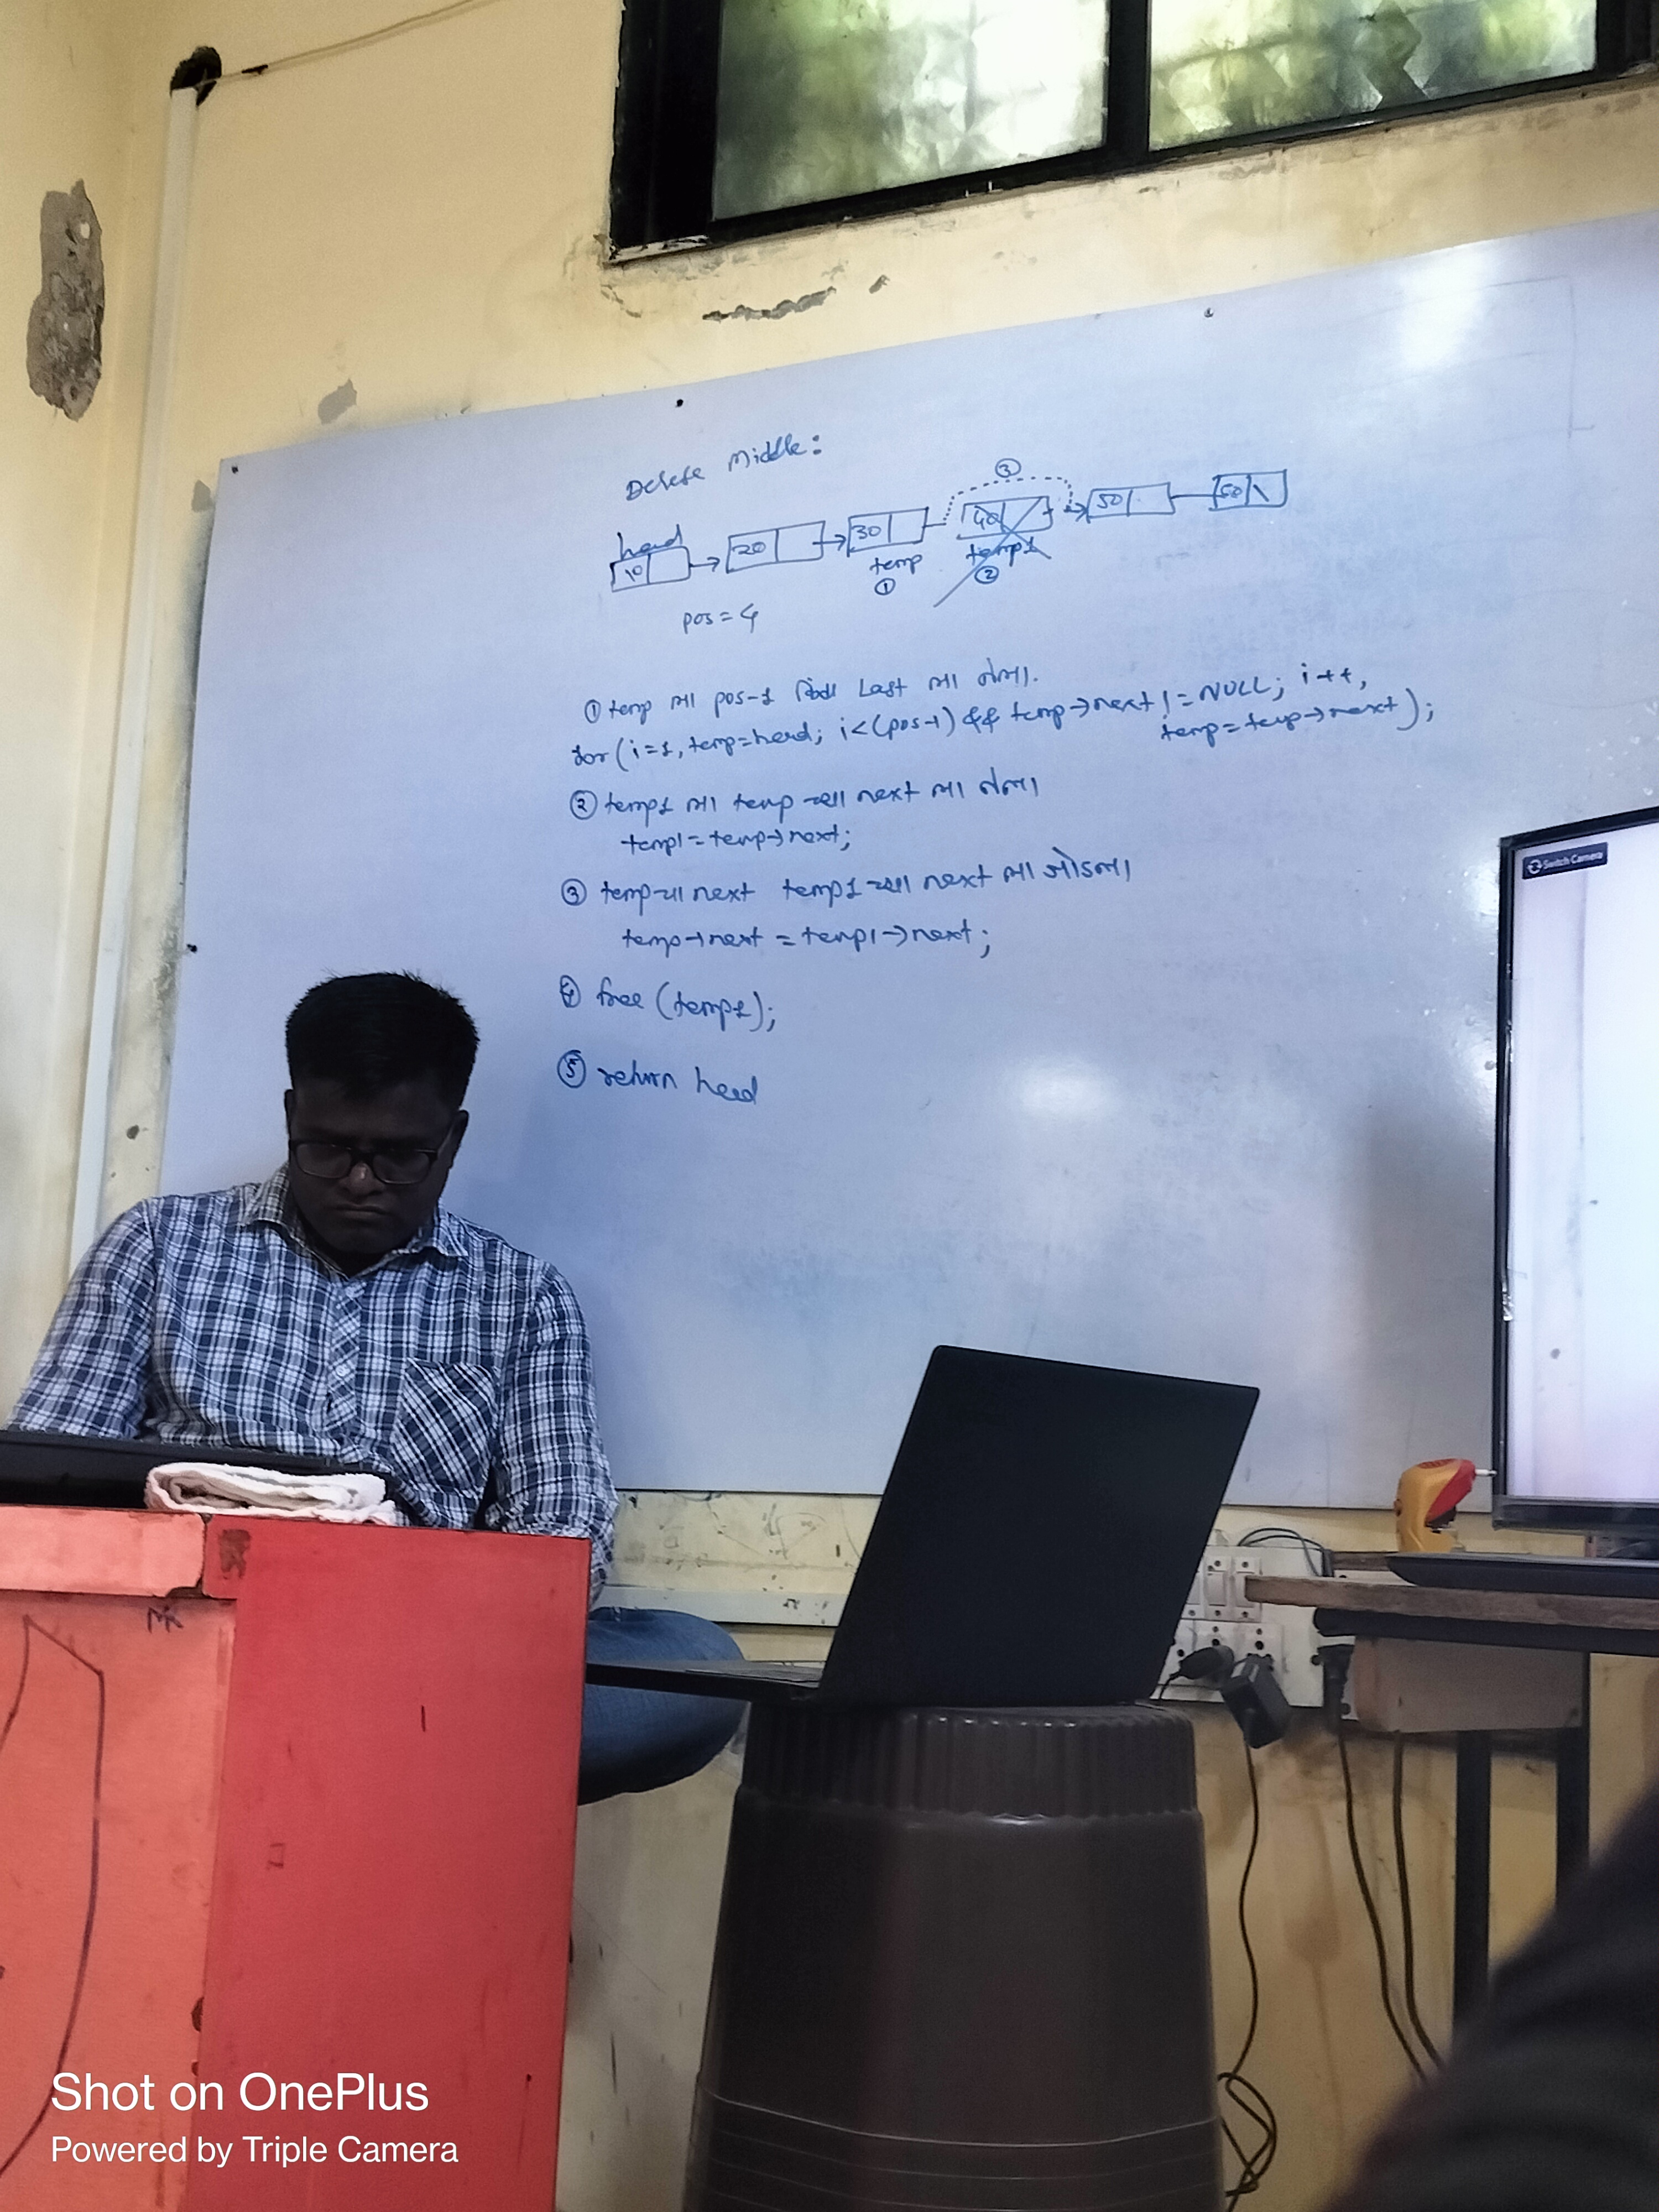 Delete Middle:
③
head
10 20 30 40 50 60
temp temp1
① ②
pos = 4
① temp ला pos-1 किंवा Last ला नेला.
for (i=1, temp=head; i<(pos-1) && temp->next != NULL; i++,
temp=temp->next);
② temp1 ला temp च्या next ला नेला
temp1 = temp->next;
③ temp चा next temp1 च्या next ला जोडला
temp->next = temp1->next;
④ free (temp1);
⑤ return head
Switch Camera
MK
Shot on OnePlus
Powered by Triple Camera